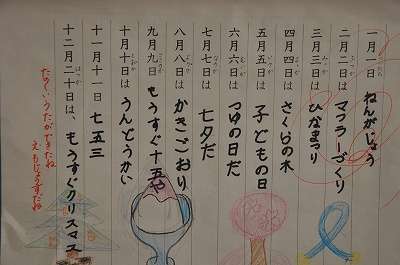 一月一日 ねんがじょう
二月二日は マフラーづくり
三月三日は ひなまつり
四月四日は さくらの木
五月五日は 子どもの日
六月六日は つゆの日だ
七月七日は 七夕だ
八月八日は かきごおり
九月九日 もうすぐ十五や
十月十日は うんどうかい
十一月十一日 七五三
十二月二十日は、もうすぐクリスマス
たのしいうたができたね
えもじょうずだね